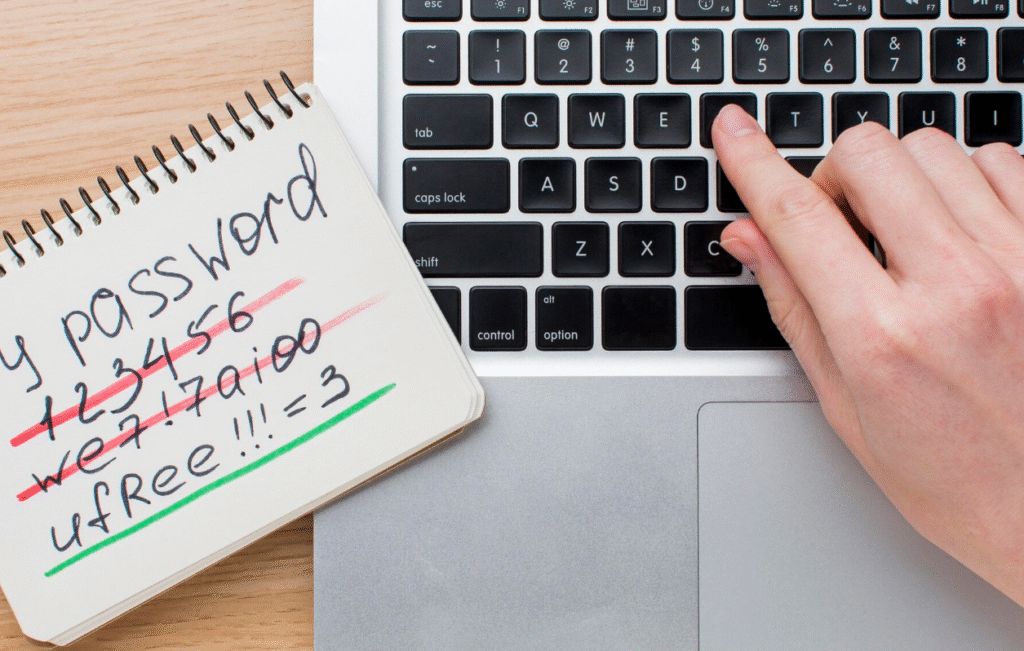 y password
123456
we7!7aioo
ufRee!!!=3
esc F1 F2 F3 F4 F5 F6 F7 F8
~ ` ! 1 @ 2 # 3 $ 4 % 5 ^ 6 & 7 * 8
tab Q W E T Y U I
caps lock A S D
shift Z X C
control alt option